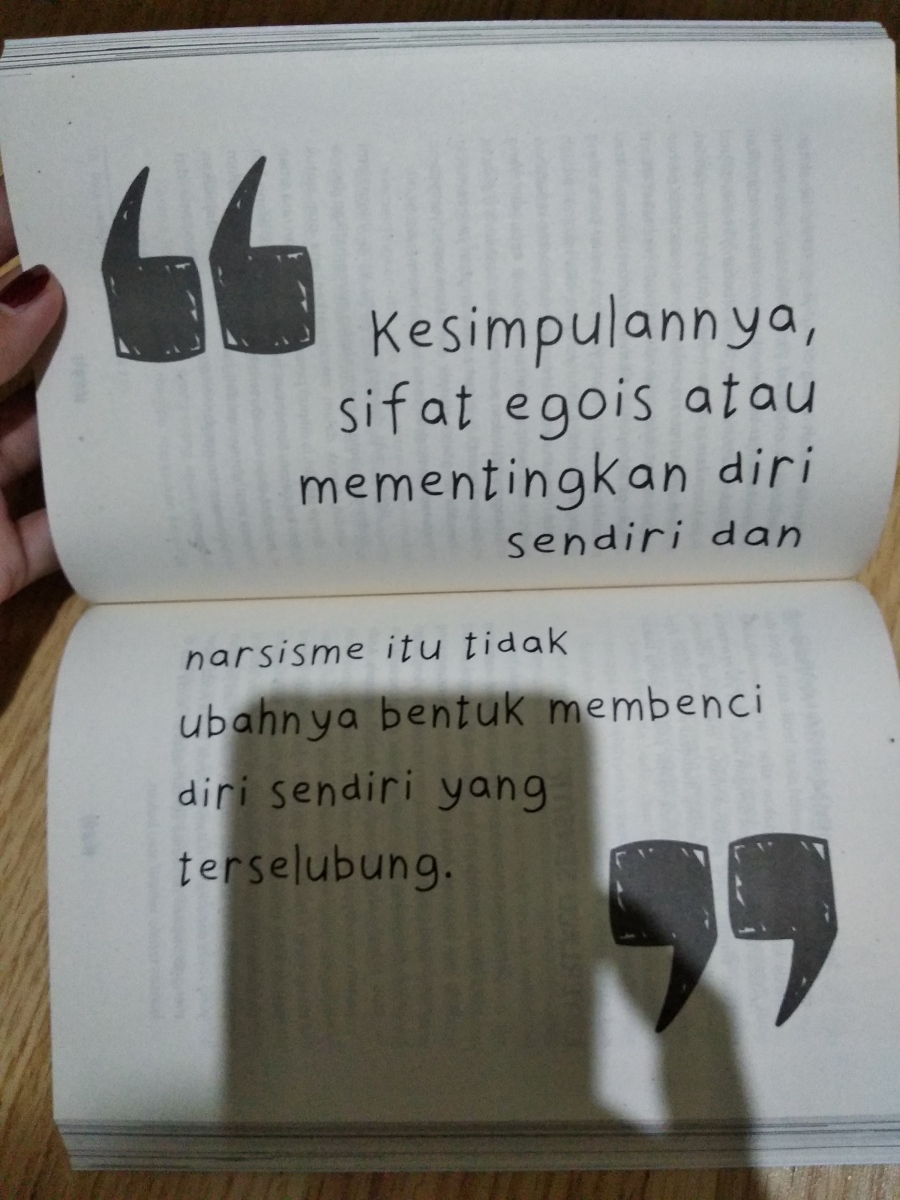 Kesimpulannya,
sifat egois atau
mementingkan diri
sendiri dan
narsisme itu tidak
ubahnya bentuk membenci
diri sendiri yang
terselubung.